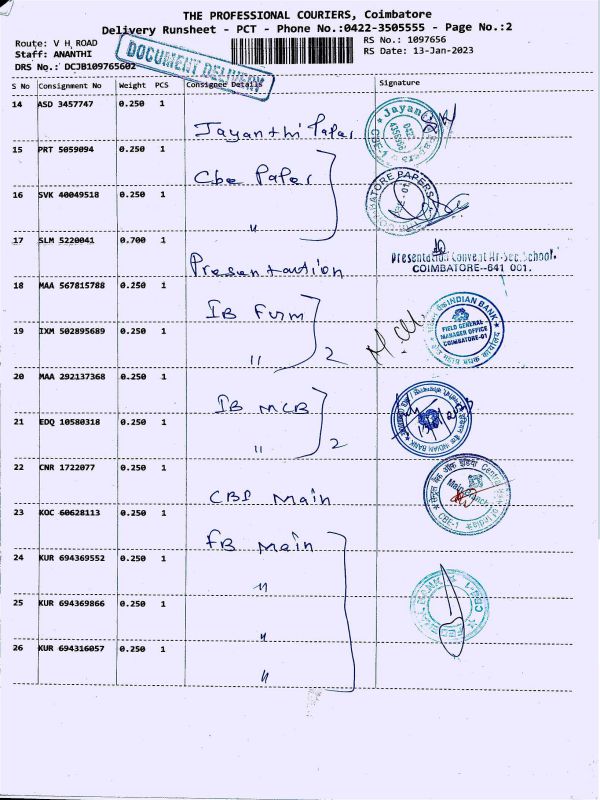 THE PROFESSIONAL COURIERS, Coimbatore
Delivery Runsheet - PCT - Phone No.:0422-3505555 - Page No.:2
Route: V H ROAD
RS No.: 1097656
Staff: ANANTHI
RS Date: 13-Jan-2023
DRS No.: DCJB109765602
DOCUMENT DELIVERY
S No Consignment No Weight PCS Consignee Details Signature
14 ASD 3457747 0.250 1
Jayanthi Paper
Jayan
CBE-1
15 PRT 5059094 0.250 1
Cbe Paper
COIMBATORE PAPERS
CBE - 01
16 SVK 40049518 0.250 1
"
17 SLM 5220041 0.700 1
Presentation
Presentation Convent Hr.Sec.School.
COIMBATORE--641 001.
18 MAA 567815788 0.250 1
IB Fgm
INDIAN BANK
FIELD GENERAL
MANAGER OFFICE
COIMBATORE-01
19 IXM 502895689 0.250 1
" 2
20 MAA 292137368 0.250 1
IB MCB
INDIAN BANK
21 EDQ 10580318 0.250 1
" 2
22 CNR 1722077 0.250 1
CBI Main
Central
Main
CBE-1
23 KOC 60628113 0.250 1
FB Main
24 KUR 694369552 0.250 1
"
25 KUR 694369866 0.250 1
"
26 KUR 694316057 0.250 1
"